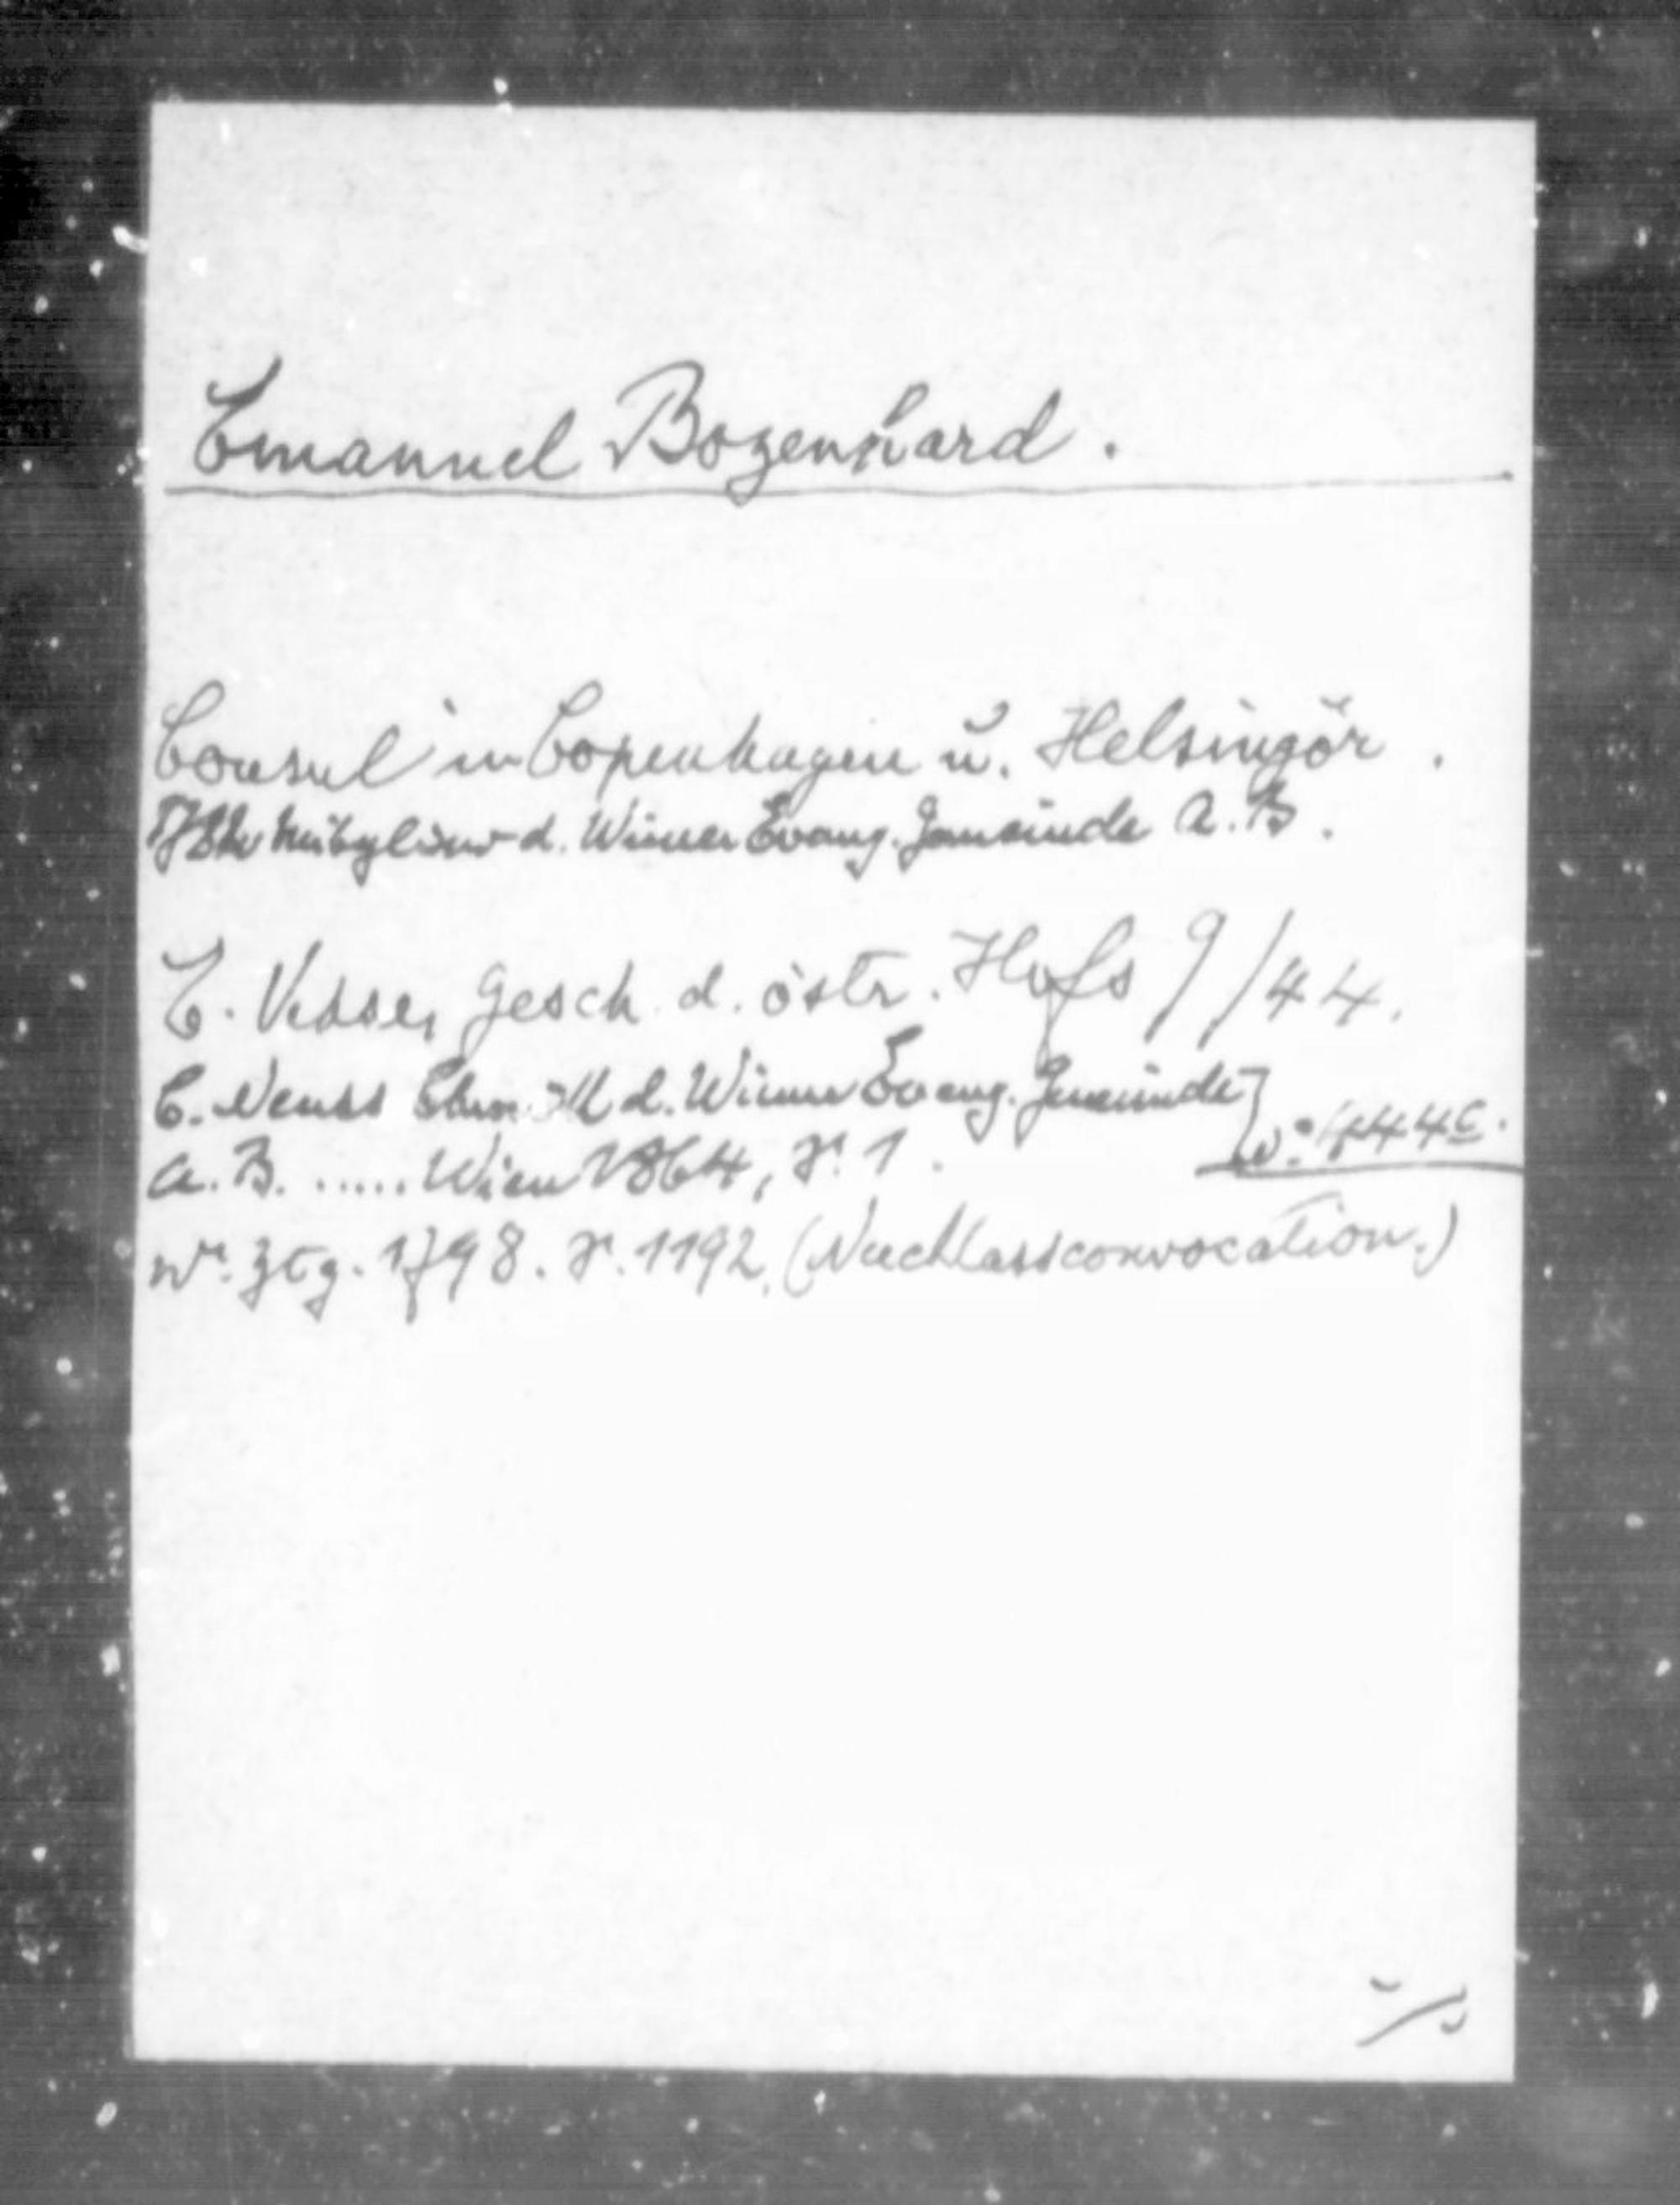 Emanuel Bozenhard.
Consul in Copenhagen u. Helsingör.
Mitglied d. Wiener Evang. Gemeinde A. B.
E. Vehse, Gesch. d. östr. Hofs 9/44.
C. d. Wiener Evang. Gemeinde
A. B. ..... Wien 1864, S. 1.
Wr. Ztg. 1798. S. 1192. (Nachlassconvocation.)